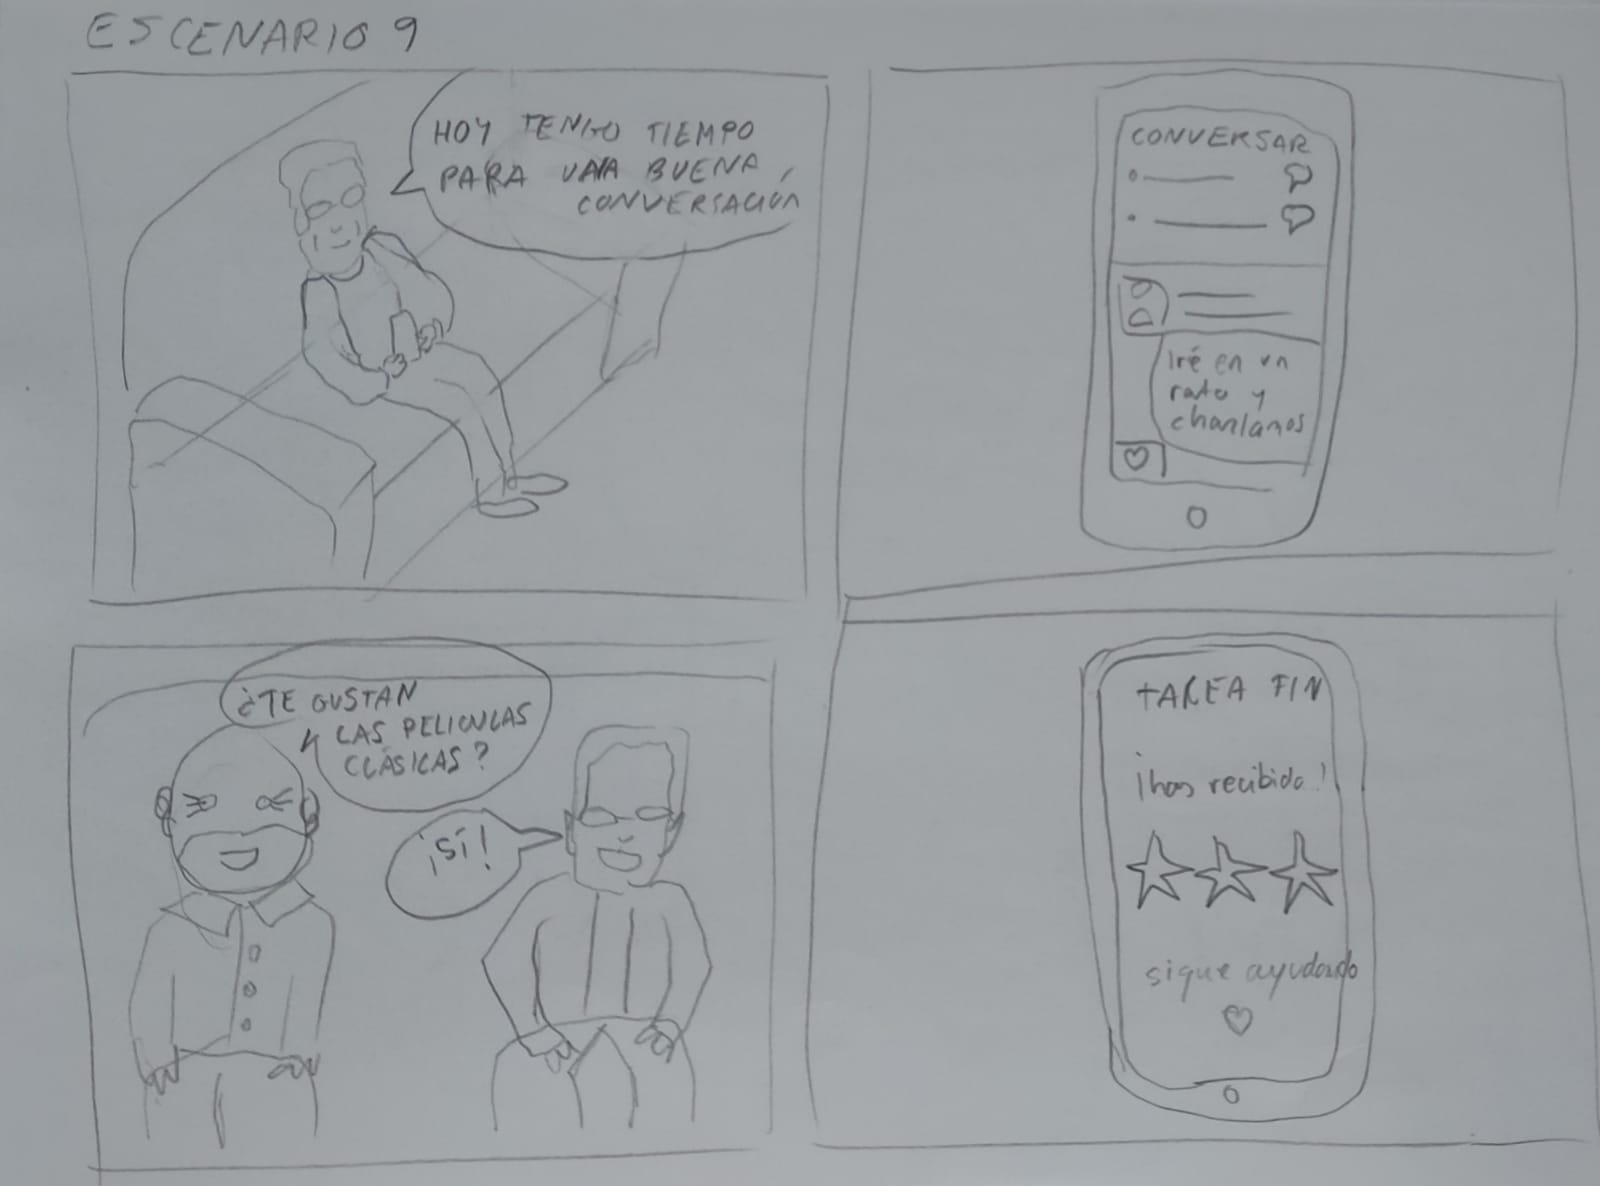 ESCENARIO 9
HOY TENGO TIEMPO
PARA UNA BUENA
CONVERSACIÓN
CONVERSAR
Iré en un
rato y
charlamos
¿TE GUSTAN
LAS PELICULAS
CLÁSICAS?
¡SÍ!
TAREA FIN
¡has recibido!
sigue ayudando